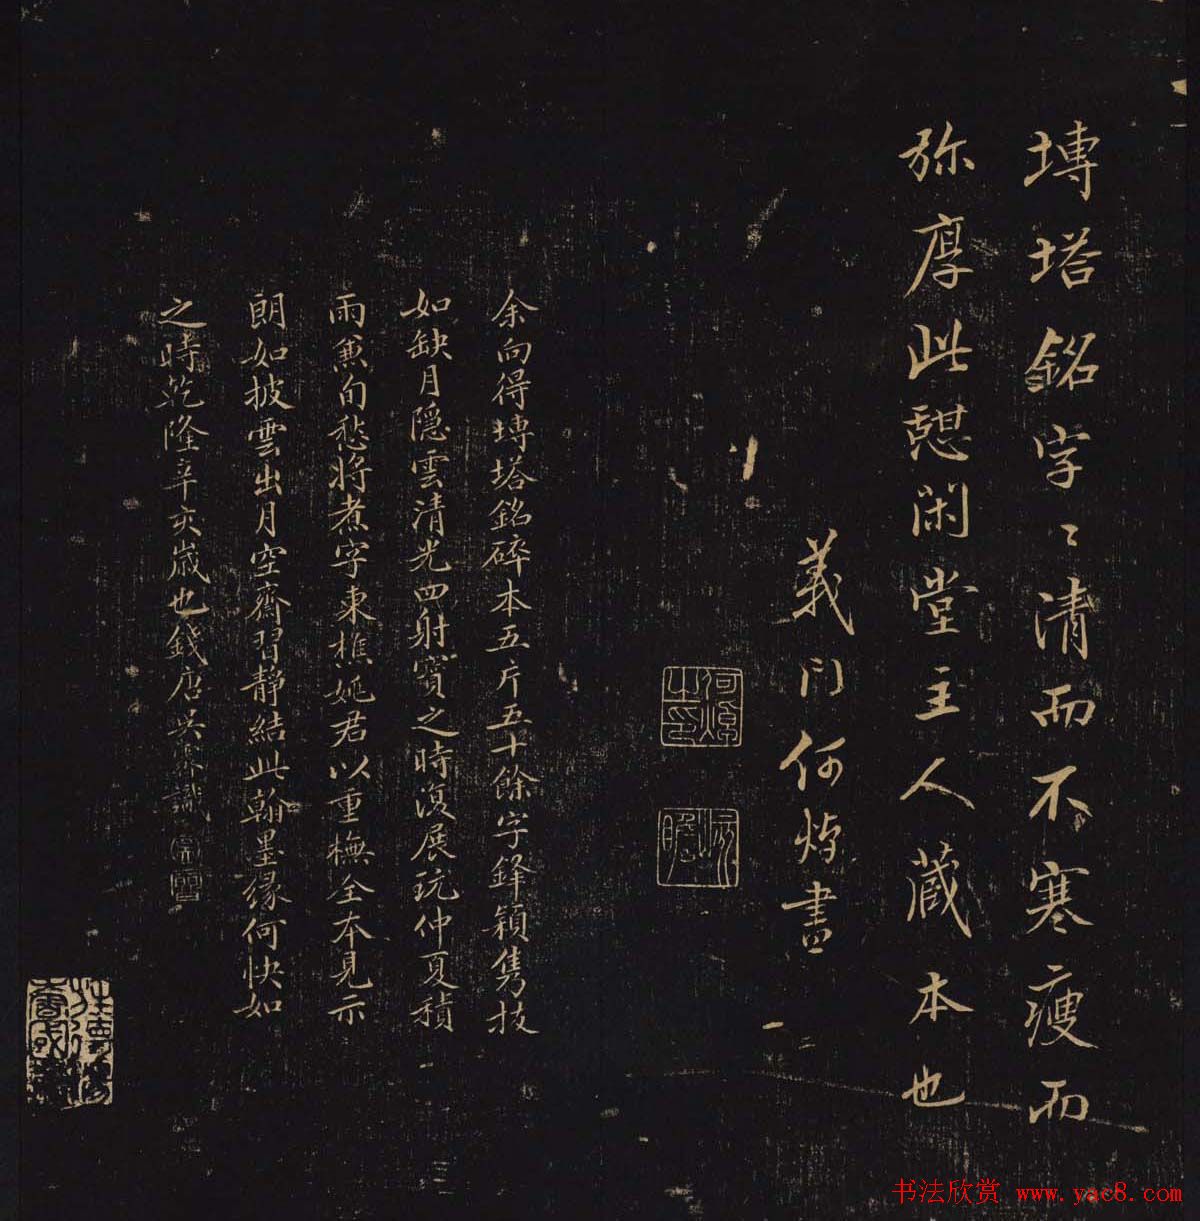 塼塔銘字〻清而不寒瘦而
弥厚此憇閑堂主人蔵本也
義门何焯書
何焯
之印
屺
瞻
余向得塼塔銘碎本五片五十餘字鋒穎隽技
如缺月隱雲清光四射寳之時復展玩仲夏積
雨兼旬愁將煮字東樵姚君以重橅全本見示
朗如披雲出月空齋習静結此翰墨缘何快如
之時乾隆辛亥嵗也錢唐吴 識
书法欣赏 www.yac8.com